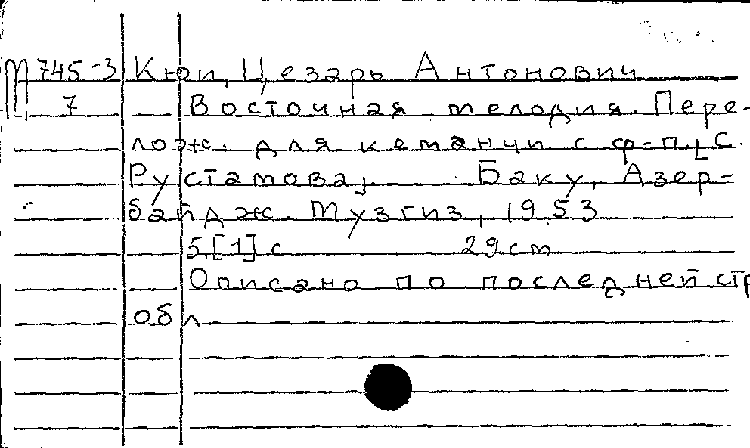 М 745-3 Кюи, Цезарь Антонович
7 Восточная мелодия. Пере-
лож. для кеманчи с ф-п. [С.
Рустамова]. Баку, Азер-
байдж. Музгиз, 1953
5,[1] с 29 cm
Описано по последней стр
обл